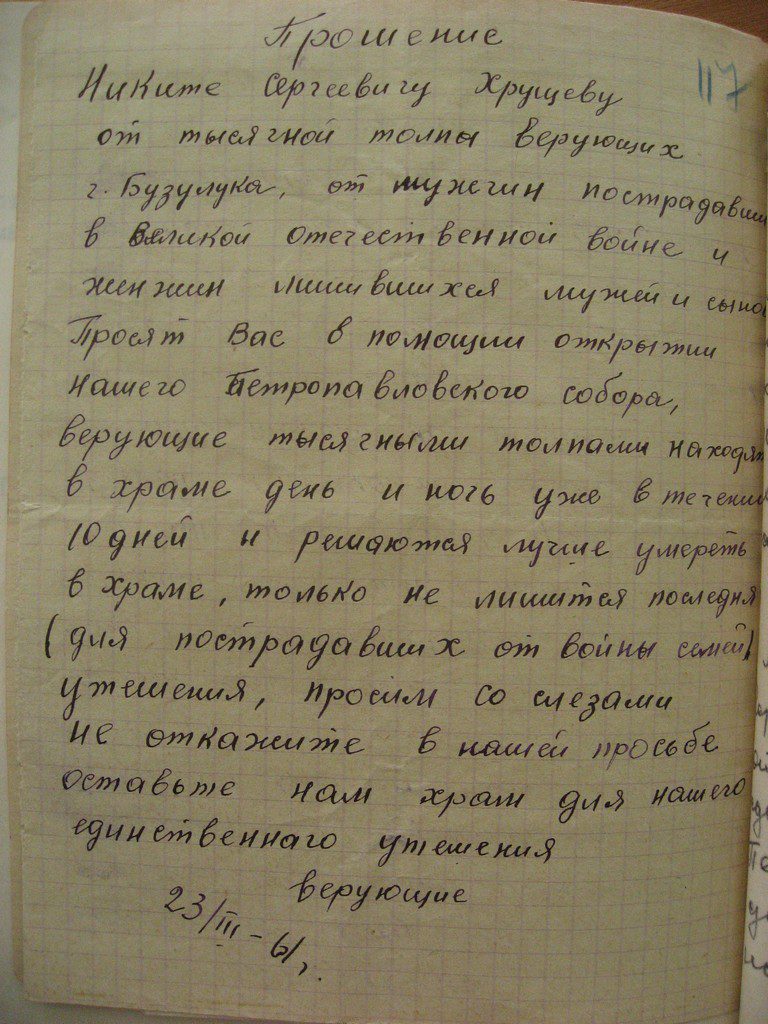 Прошение
117
Никите Сергеевичу Хрущеву
от тысячной толпы верующих
г. Бузулука, от мужчин пострадавши
в Великой отечественной войне и
женжин лишившихся мужей и сыно
Просят Вас в помощии открытии
нашего Петропавловского собора,
верующие тысячными толпами находят
в храме день и ночь уже в течении
10 дней и решаются лучше умереть
в храме, только не лишится последня
(для пострадавших от войны семей)
утешения, просим со слезами
не откажите в нашей просьбе
оставьте нам храм для нашего
единственнаго утешения
верующие
23/III – 61,